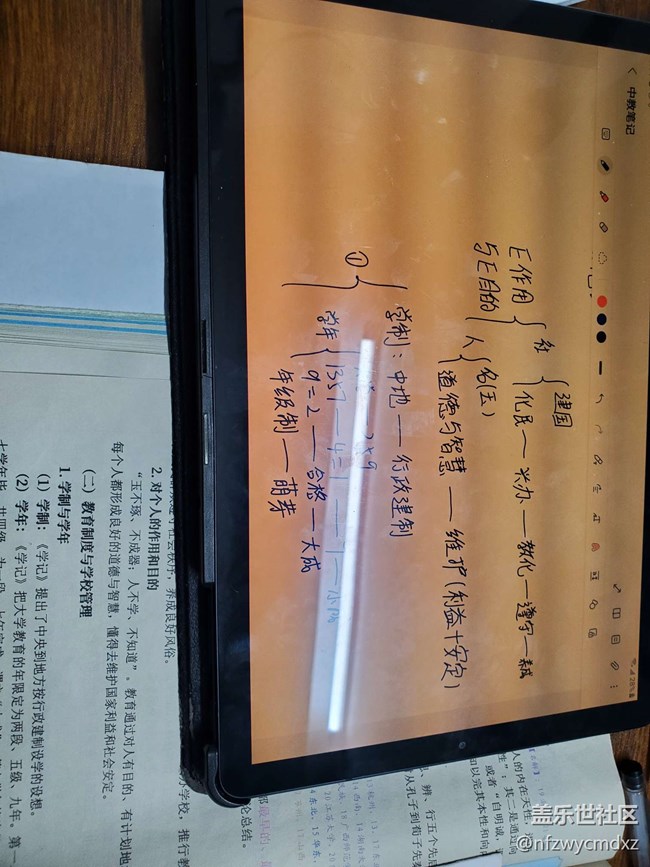 中教笔记
28%
E作用
与E目的
社
建国
化民 — 兴办 — 教化 — 遵守 — 养成
人
名(玉)
道德与智慧 — 维护(利益+安定)
①
学制：中地 — 行政建制
学年
1357 — 4=1 — 1 — 小成
9=2 — 合格 — 大成
年级制 — 萌芽
养成良好风俗。
2. 对个人的作用和目的
“玉不琢、不成器；人不学、不知道”。教育通过对人有目的、有计划地
每个人都形成良好的道德与智慧，懂得去维护国家利益和社会安定。
(二) 教育制度与学校管理
1. 学制与学年
(1) 学制：《学记》提出了中央到地方按行政建制设学的设想。
(2) 学年：《学记》把大学教育的年限定为两段、五级、九年。第一
学校，推行教
论总结。
人的内在天性，
；其二是通过向
或者“自明诚，
、辨、行五个先
从孔子到荀子先秦
盖乐世社区
@nfzwycmdxz